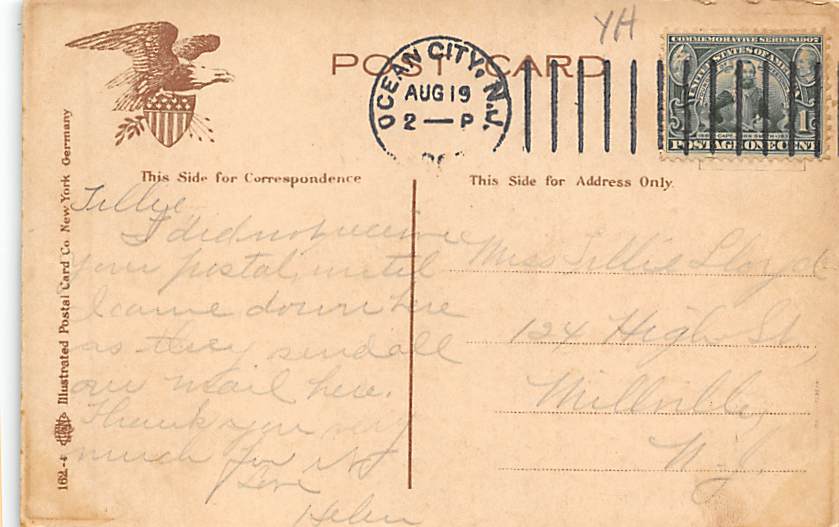 YH
POST CARD
OCEAN CITY, N.J.
AUG 19
2 — P
COMMEMORATIVE SERIES 1907
UNITED STATES OF AMERICA
1
POSTAGE ONE CENT
This Side for Correspondence
This Side for Address Only.
Tillie
I did not receive
your postal until
I came down here
as they send all
our mail here.
Thank you very
much for it
Love
Helen
Miss Tillie Lloyd
124 High St,
Millville,
N.J.
162-4 Illustrated Postal Card Co New York Germany